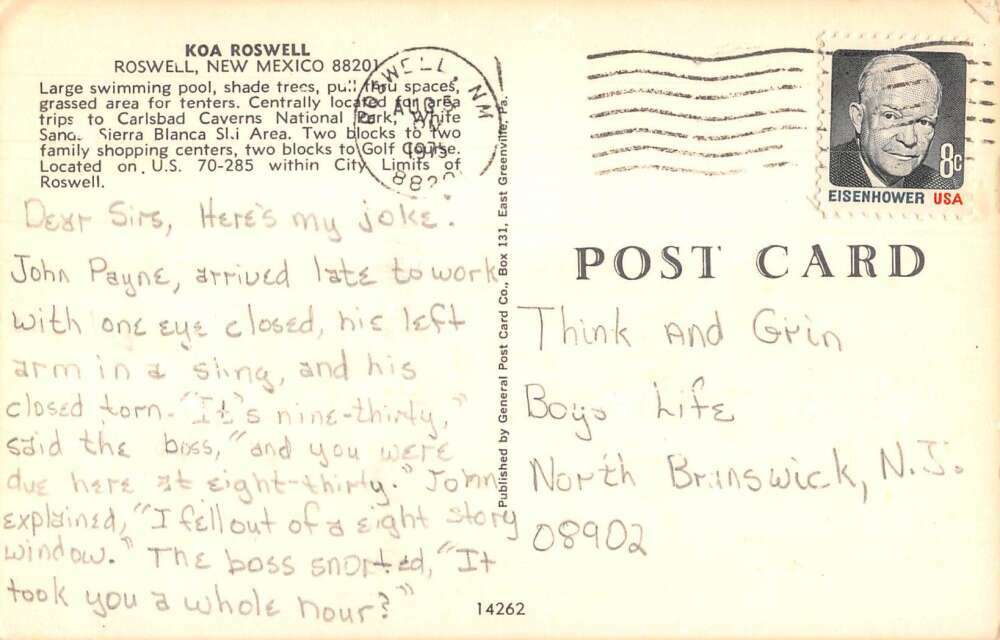 KOA ROSWELL
ROSWELL, NEW MEXICO 88201
Large swimming pool, shade trees, pull thru spaces,
grassed area for tenters. Centrally located for area
trips to Carlsbad Caverns National Park, White
Sands, Sierra Blanca Ski Area. Two blocks to two
family shopping centers, two blocks to Golf Course.
Located on U.S. 70-285 within City Limits of
Roswell.
ROSWELL, NM
AUG 5
PM
1975
8820
Dear Sirs, Here's my joke.
John Payne, arrived late to work
with one eye closed, his left
arm in a sling, and his
closed torn. "It's nine-thirty,"
said the boss, "and you were
due here at eight-thirty." John
explained, "I fell out of a eight story
window." The boss snorted, "It
took you a whole hour?"
Published by General Post Card Co., Box 131, East Greenville, Pa.
8c
EISENHOWER USA
POST CARD
Think And Grin
Boys Life
North Brunswick, N.J.
08902
14262